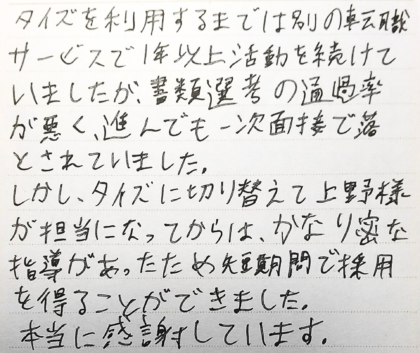 タイズを利用するまでは別の転職
サービスで1年以上活動を続けて
いましたが、書類選考の通過率
が悪く、進んでも一次面接で落
とされていました。
しかし、タイズに切り替えて上野様
が担当になってからは、かなり密な
指導があったため短期間で採用
を得ることができました。
本当に感謝しています。